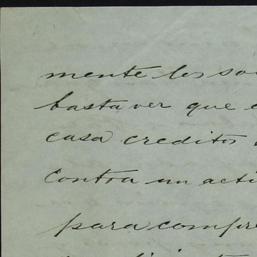 mente los so
basta ver que e
casa creditos
contra un acti
para compre